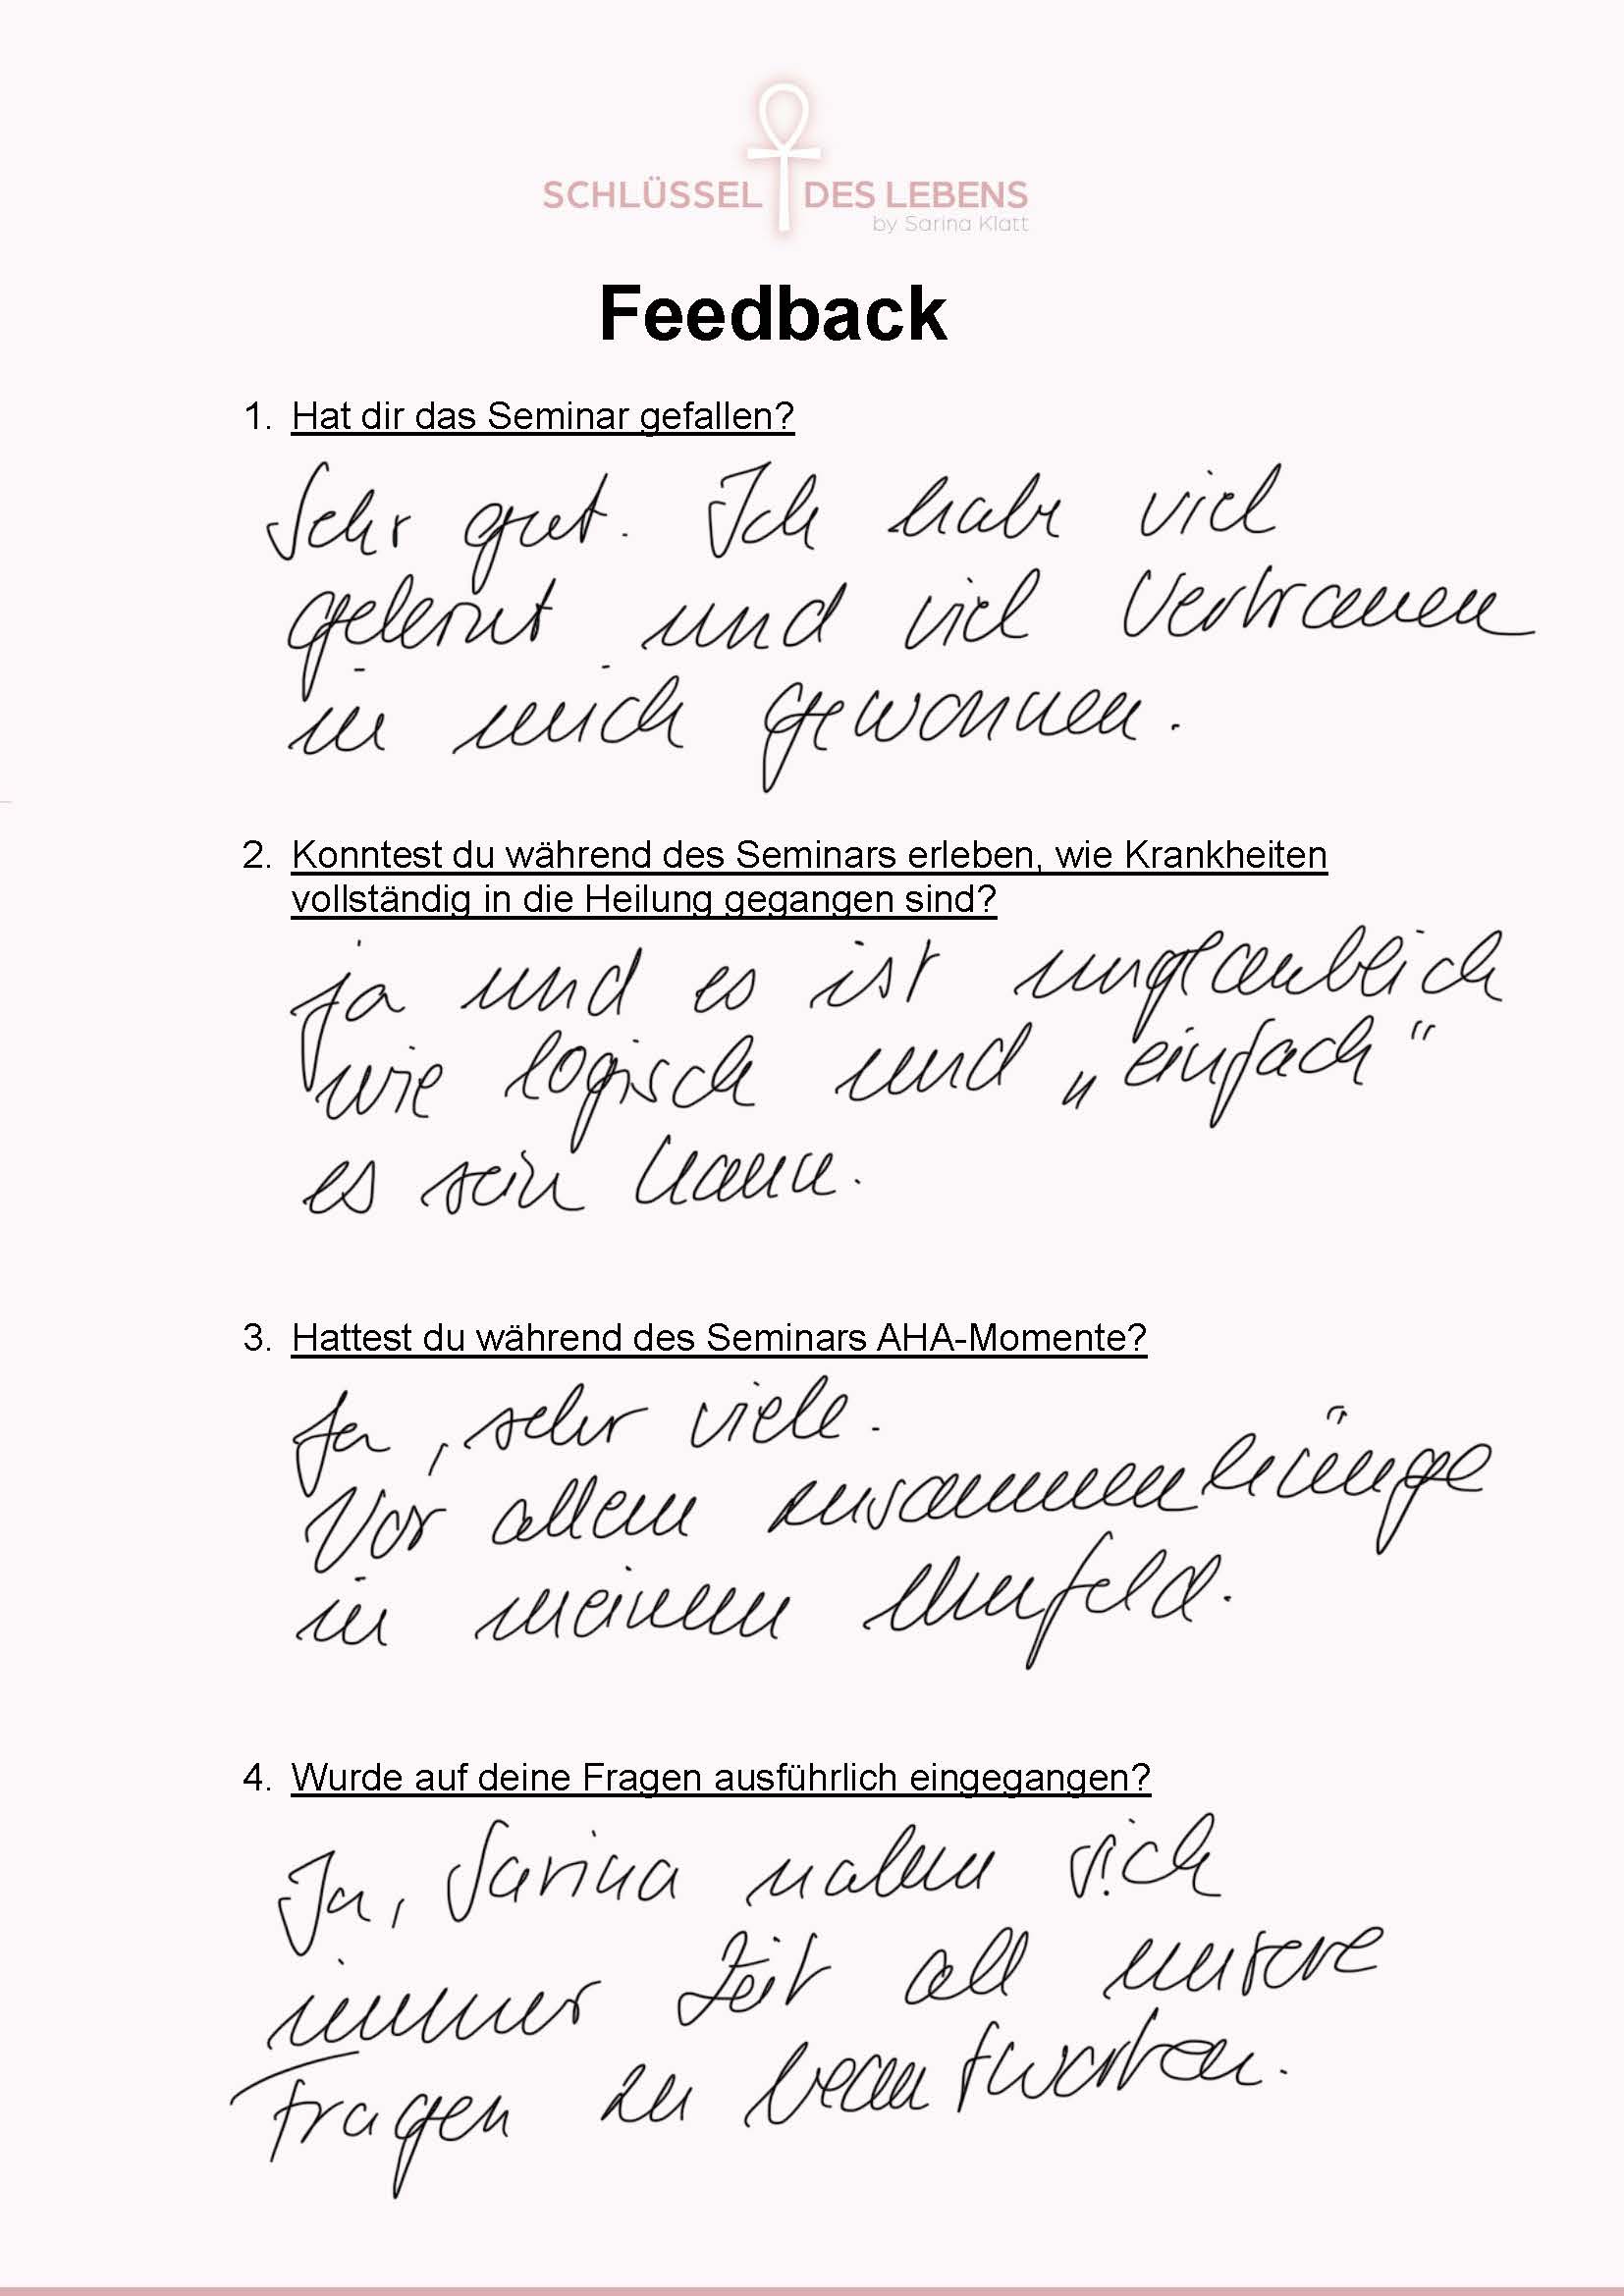 SCHLÜSSEL DES LEBENS
by Sarina Klatt
Feedback
1. Hat dir das Seminar gefallen?
Sehr gut. Ich habe viel
gelernt und viel Vertrauen
in mich gewonnen.
2. Konntest du während des Seminars erleben, wie Krankheiten
vollständig in die Heilung gegangen sind?
ja und es ist unglaublich
wie logisch und „einfach“
es sein kann.
3. Hattest du während des Seminars AHA-Momente?
Ja, sehr viele.
Vor allem zusammenhänge
in meinem Umfeld.
4. Wurde auf deine Fragen ausführlich eingegangen?
Ja, Sarina nahm sich
immer Zeit all unsere
Fragen zu beantworten.